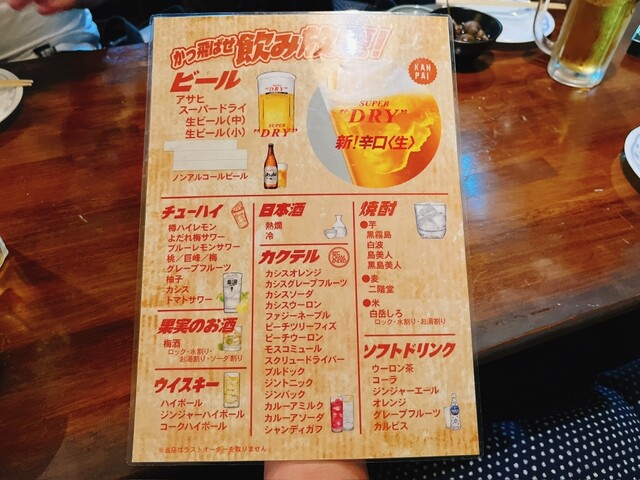 かっ飛ばせ飲み放題!
KAN
PAI
ビール
アサヒ
スーパードライ
生ビール(中)
生ビール(小)
ノンアルコールビール
SUPER
"DRY"
SUPER
"DRY"
新!辛口〈生〉
チューハイ
樽ハイレモン
よだれ梅サワー
ブルーレモンサワー
桃/巨峰/梅
グレープフルーツ
柚子
カシス
トマトサワー
果実のお酒
梅酒
ロック・水割り・
お湯割り・ソーダ割り
ウイスキー
ハイボール
ジンジャーハイボール
コークハイボール
日本酒
熱燗
冷
カクテル
カシスオレンジ
カシスグレープフルーツ
カシスソーダ
カシスウーロン
ファジーネーブル
ピーチツリーフィズ
ピーチウーロン
モスコミュール
スクリュードライバー
ブルドック
ジントニック
ジンバック
カルーアミルク
カルーアソーダ
シャンディガフ
焼酎
●芋
黒霧島
白波
島美人
黒島美人
●麦
二階堂
●米
白岳しろ
ロック・水割り・お湯割り
ソフトドリンク
ウーロン茶
コーラ
ジンジャーエール
オレンジ
グレープフルーツ
カルピス
※当店はラストオーダーを取りません